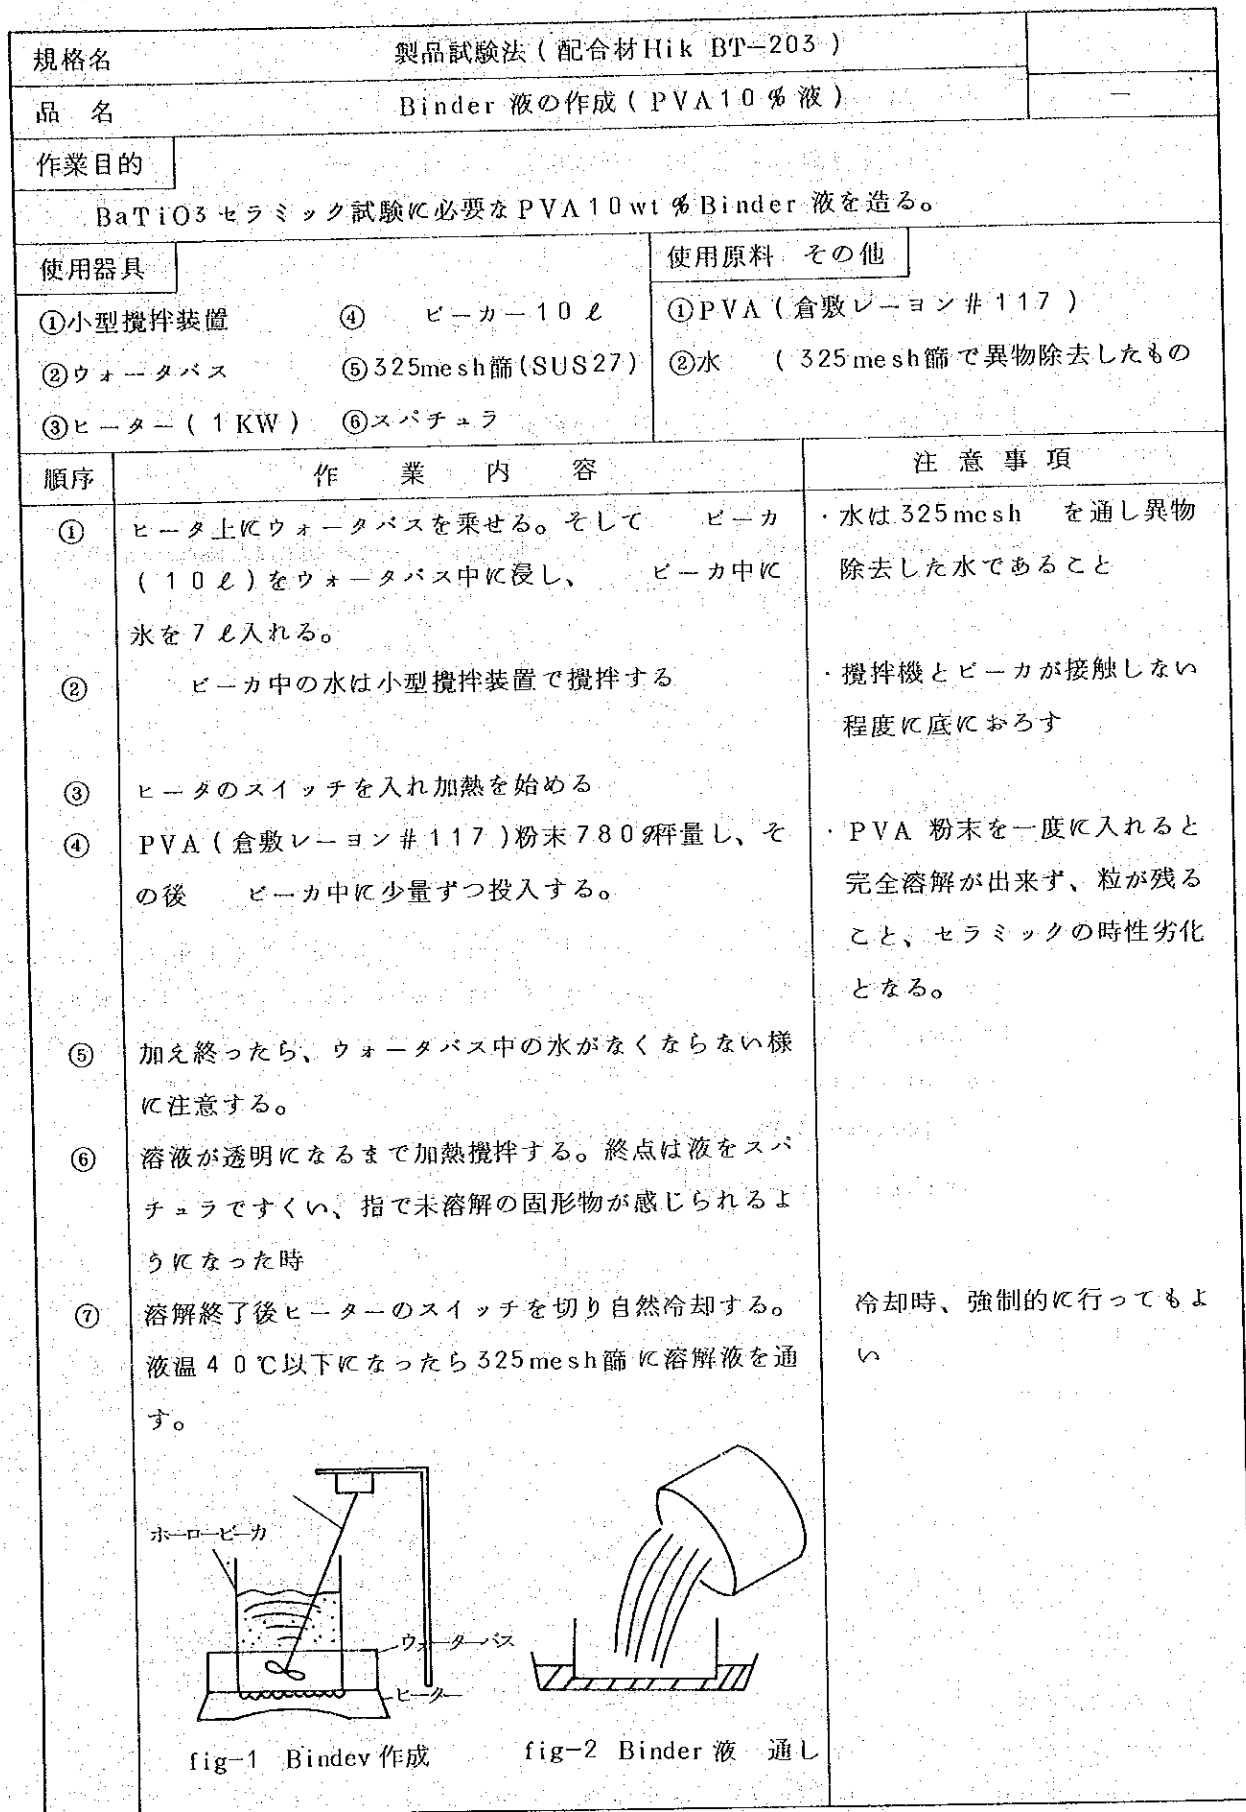 規格名 製品試験法(配合材Hik BT-203)
品 名 Binder 液の作成(PVA10%液) —
作業目的
BaTiO3セラミック試験に必要なPVA10wt%Binder液を造る。
使用器具
①小型攪拌装置 ④ ビーカー10ℓ
②ウォータバス ⑤325mesh篩(SUS27)
③ヒーター(1KW) ⑥スパチュラ
使用原料 その他
①PVA(倉敷レーヨン#117)
②水 (325mesh篩で異物除去したもの
順序 作業内容 注意事項
① ヒータ上にウォータバスを乗せる。そして ビーカ
(10ℓ)をウォータバス中に浸し、 ビーカ中に
氷を7ℓ入れる。
・水は325mesh を通し異物
除去した水であること
② ビーカ中の水は小型攪拌装置で攪拌する
・攪拌機とビーカが接触しない
程度に底におろす
③ ヒータのスイッチを入れ加熱を始める
④ PVA(倉敷レーヨン#117)粉末780g秤量し、そ
の後 ビーカ中に少量ずつ投入する。
・PVA 粉末を一度に入れると
完全溶解が出来ず、粒が残る
こと、セラミックの時性劣化
となる。
⑤ 加え終ったら、ウォータバス中の水がなくならない様
に注意する。
⑥ 溶液が透明になるまで加熱攪拌する。終点は液をスパ
チュラですくい、指で未溶解の固形物が感じられるよ
うになった時
⑦ 溶解終了後ヒーターのスイッチを切り自然冷却する。
液温40℃以下になったら325mesh篩に溶解液を通
す。
冷却時、強制的に行ってもよ
い
ホーロービーカ
ウォーターバス
ヒーター
fig-1 Bindev作成
fig-2 Binder液 通し